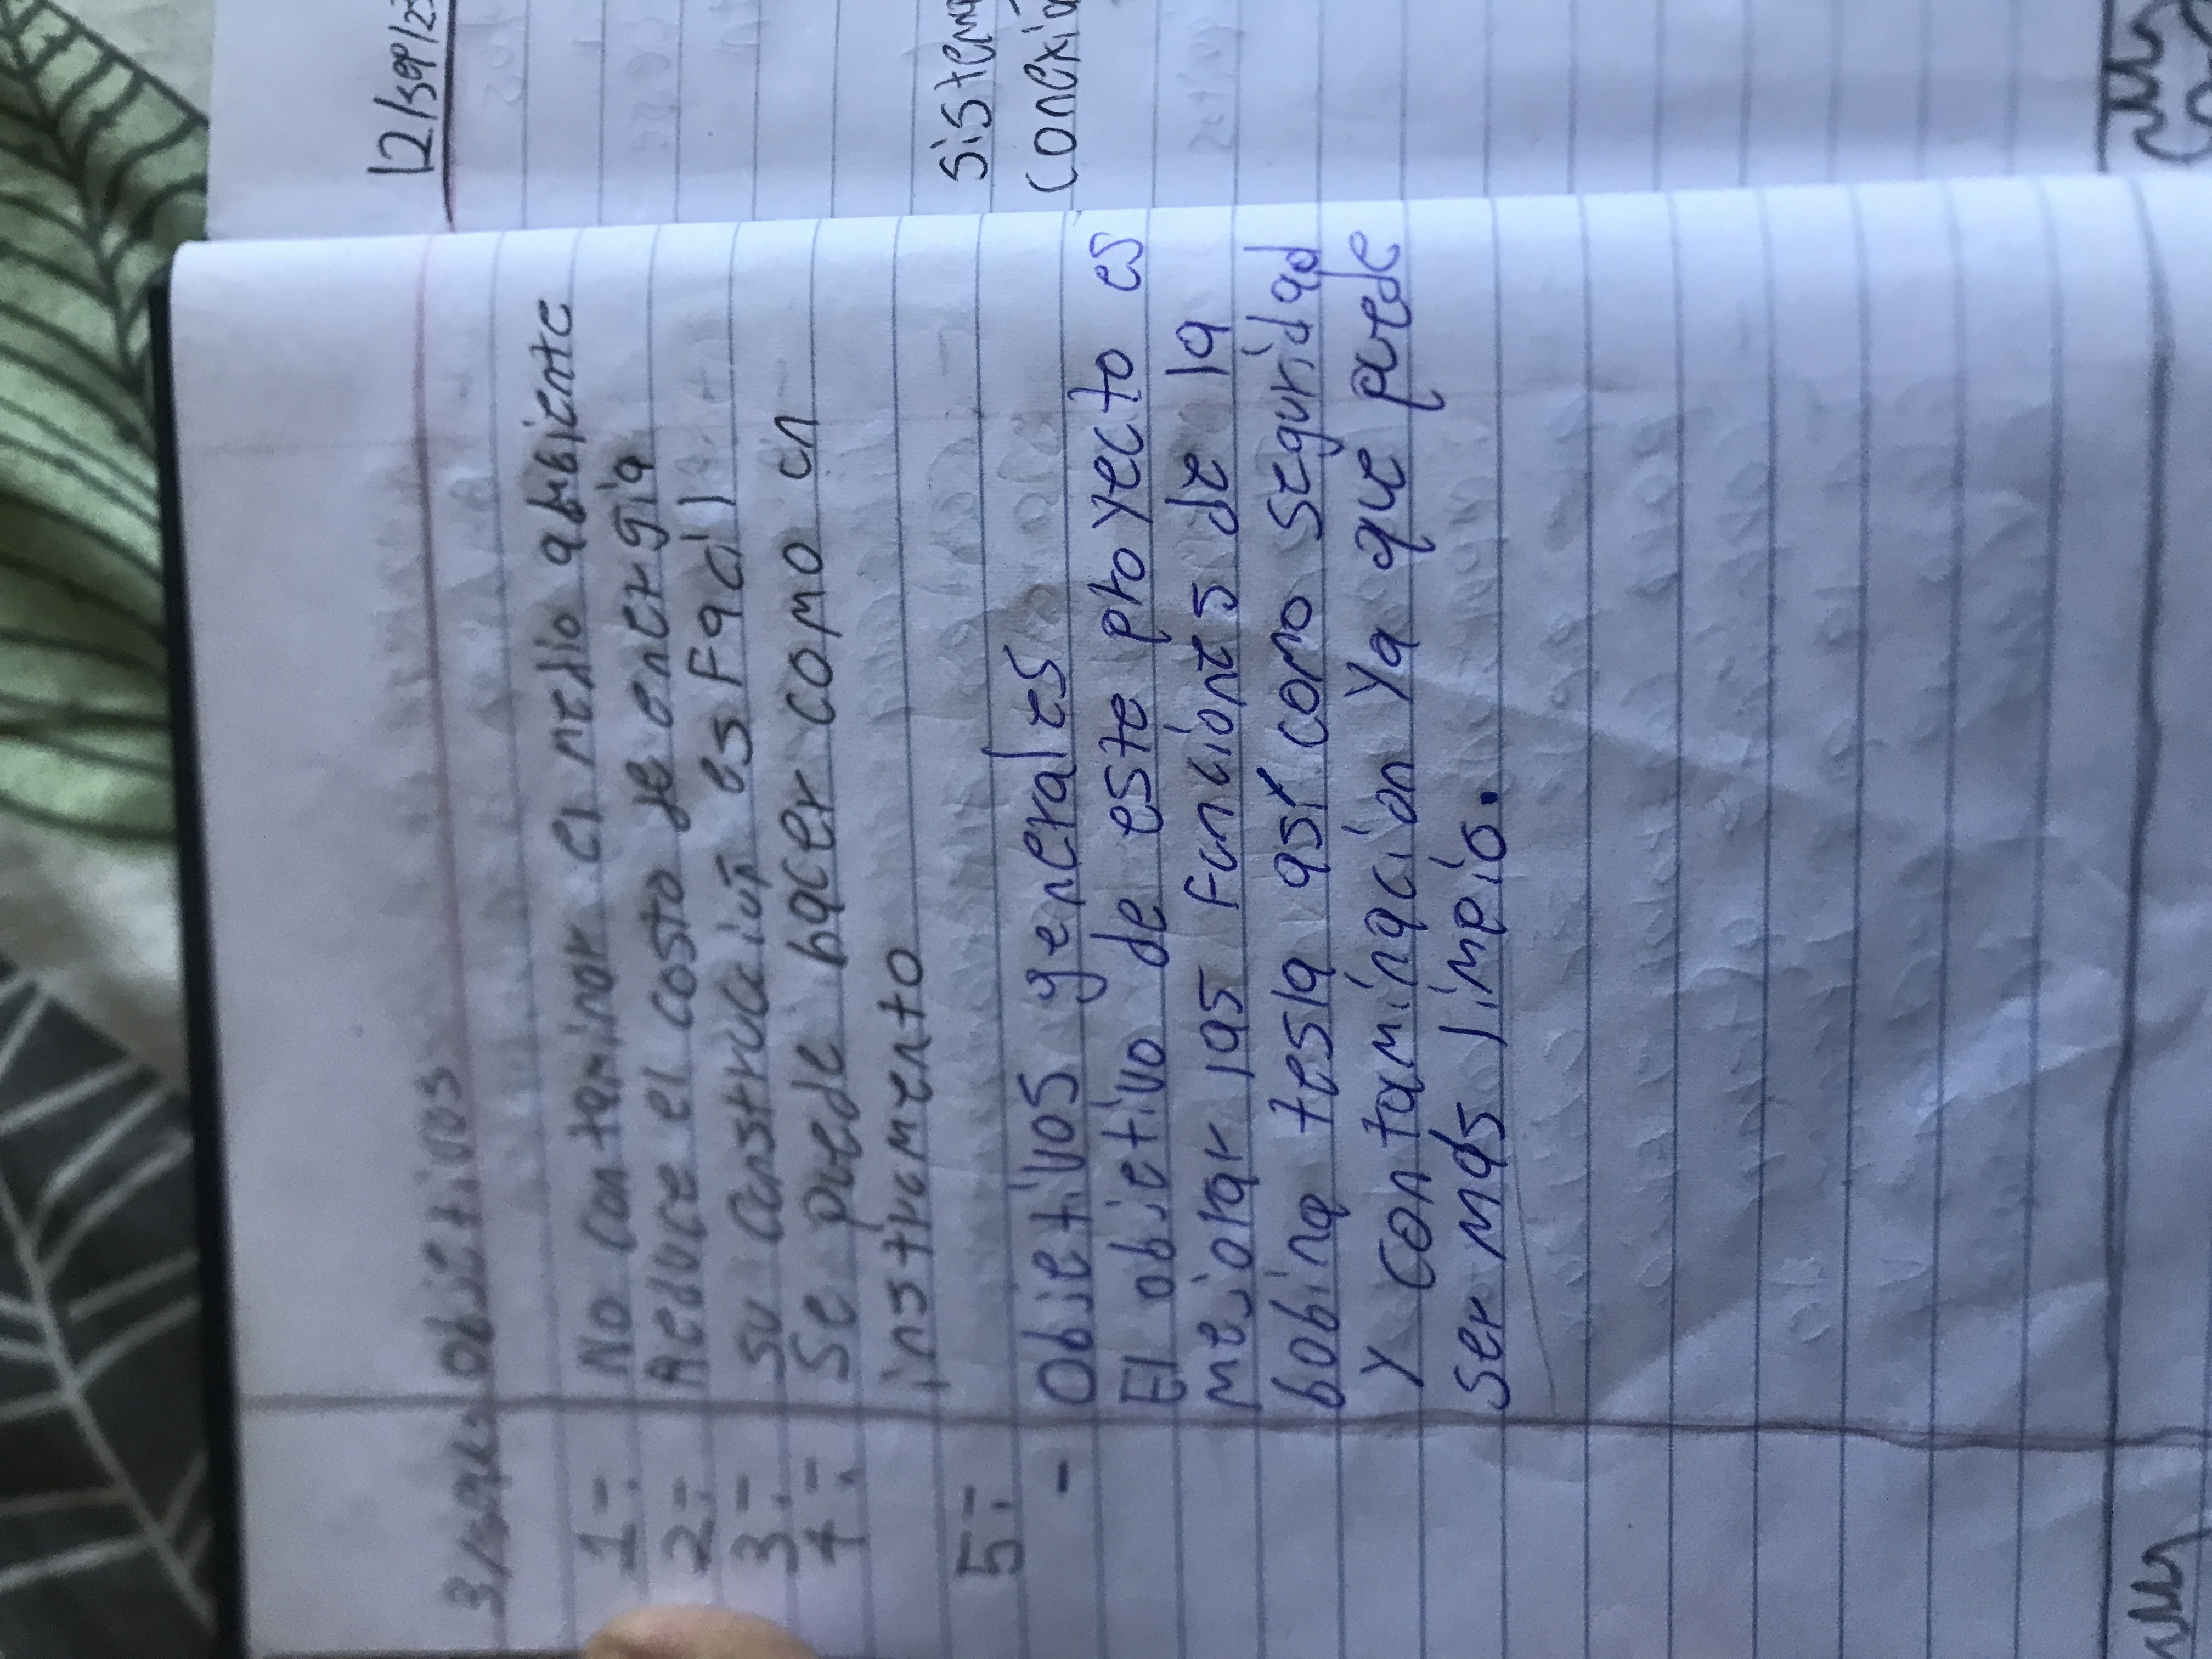 Objetivos
1-. No contaminar el medio abiente
2-. Reduce el costo de energía
3-. Su construcción es Facíl
4-. Se puede hacer como en
instrumento
5-.
- Objetivos generales
El objetivo de este proyecto es
mejorar las funciones de la
bobina tesla así como seguridad
y contaminación Ya que puede
ser más limpio.
12/sep/23
Sistem
Conexió